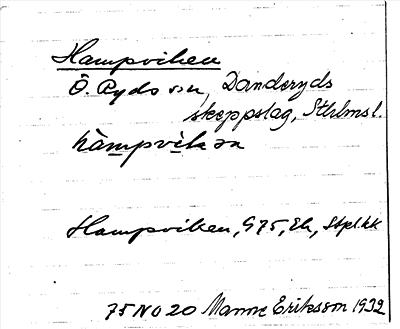 Hampviken
Ö. Ryds sn, Danderyds
skeppslag, Sthlms l.
hàmpvìkan
Hampviken, G75, Ek, Stpl.kk
75 NO 20 Manne Eriksson 1932